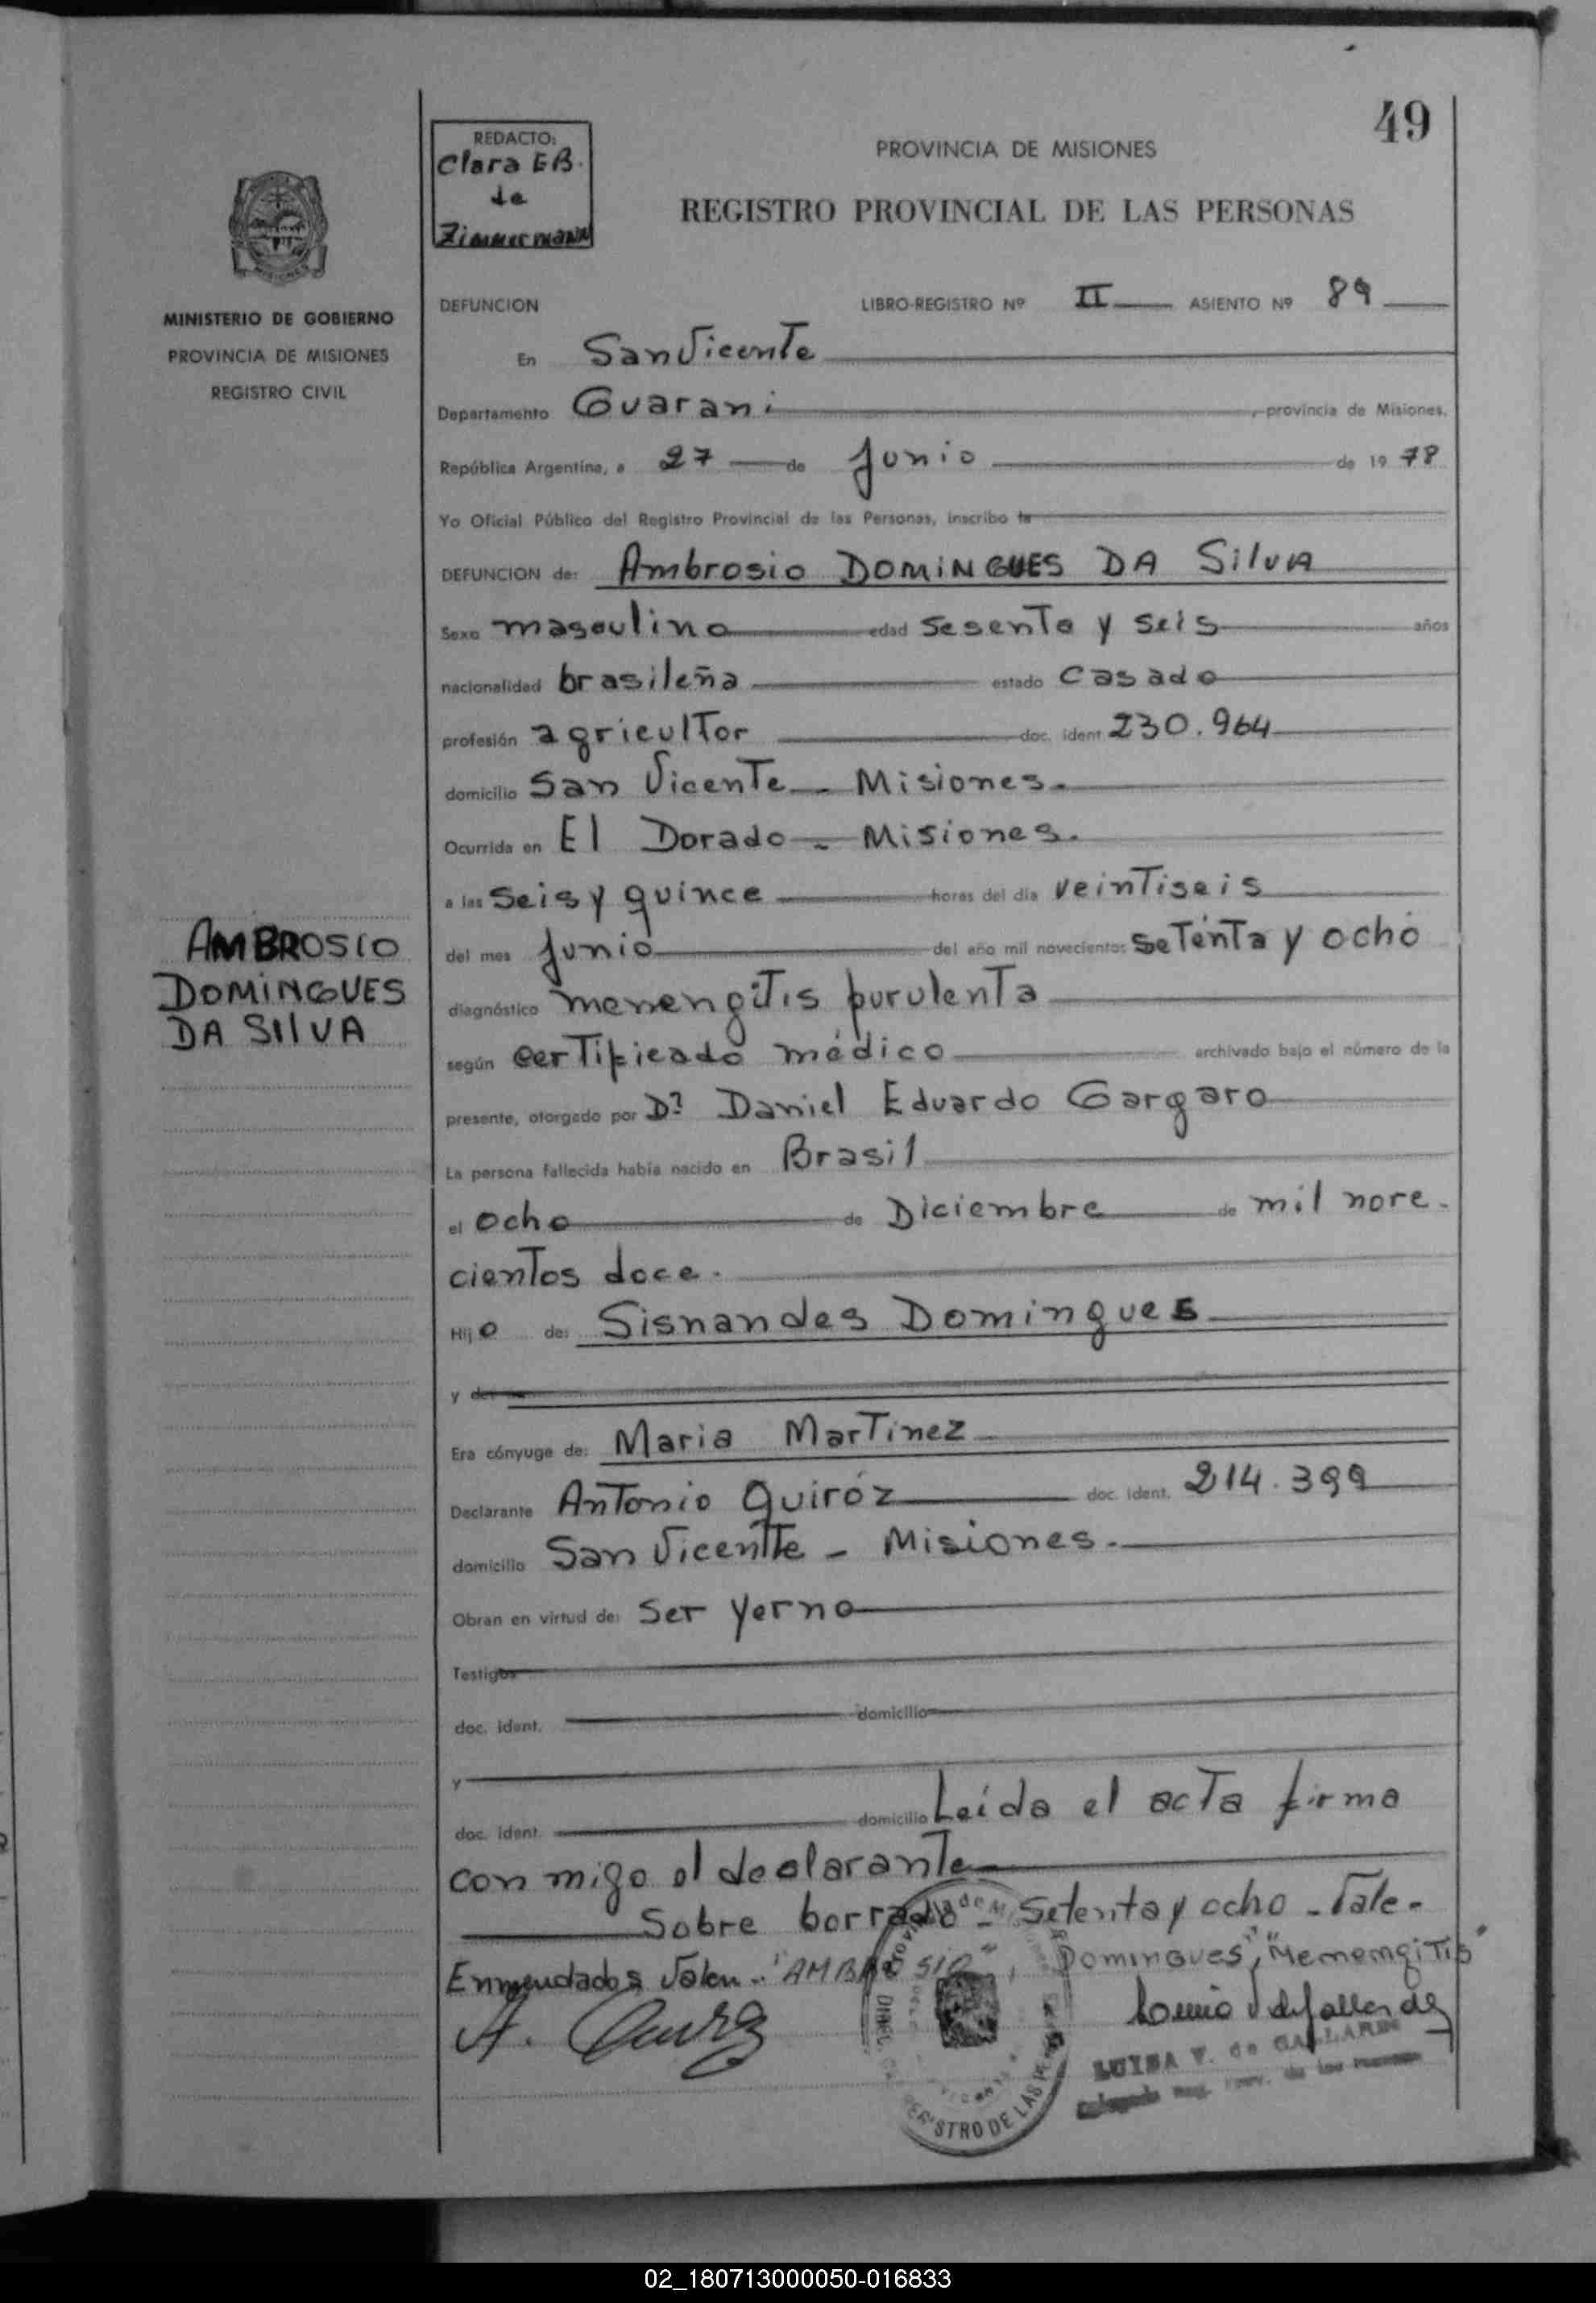 49
REDACTO:
Clara E B.
de
Zimmermann
PROVINCIA DE MISIONES
REGISTRO PROVINCIAL DE LAS PERSONAS
MINISTERIO DE GOBIERNO
PROVINCIA DE MISIONES
REGISTRO CIVIL
DEFUNCION LIBRO-REGISTRO Nº II ASIENTO Nº 89
En San Vicente
Departamento Guarani, provincia de Misiones.
República Argentina, a 27 de junio de 1978
Yo Oficial Público del Registro Provincial de las Personas, inscribo la
DEFUNCION de: Ambrosio DOMINGUES DA SilVA
Sexo masculino edad sesenta y seis años
nacionalidad brasileña estado casado
profesión agricultor doc. ident 230.964
domicilio San Vicente - Misiones.
Ocurrida en El Dorado - Misiones.
a las seis y quince horas del día veintiseis
del mes junio del año mil novecientos setenta y ocho
AMBROSIO
DOMINGUES
DA SIlVA
diagnóstico menengitis purulenta
según certificado médico archivado bajo el número de la
presente, otorgado por Dr Daniel Eduardo Gargaro
La persona fallecida había nacido en Brasil
el ocho de Diciembre de mil nove-
cientos doce.
Hijo de: Sisnandes Domingues
y de:
Era cónyuge de: Maria Martinez
Declarante Antonio Quiróz doc. ident. 214.399
domicilio San Vicente - Misiones.
Obran en virtud de: ser yerno
Testigos
doc. ident. domicilio
y
doc. ident. domicilio Leída el acta firma
con migo el declarante
Sobre borrado - setenta y ocho - Vale.
Enmendados Valen.- "AMBROSIO", "Domingues", "Memengitis"
A. Quiroz
LUISA V. de GALLARDO
REGISTRO DE LAS PE
02_180713000050-016833